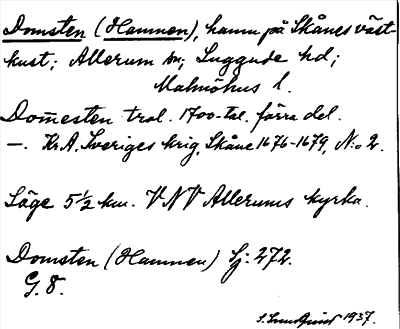 Domsten (Hamnen), hamn på Skånes väst-
kust; Allerum sn; Luggude hd;
Malmöhus l.
Dom̄esten trol. 1700-tal. förra del.
—. Kr.A. Sveriges krig, Skåne 1676-1679, N:o 2.
Läge 5½ km. VNV Allerums kyrka.
Domsten (Hamnen) Sj: 272.
G. 8.
1937.